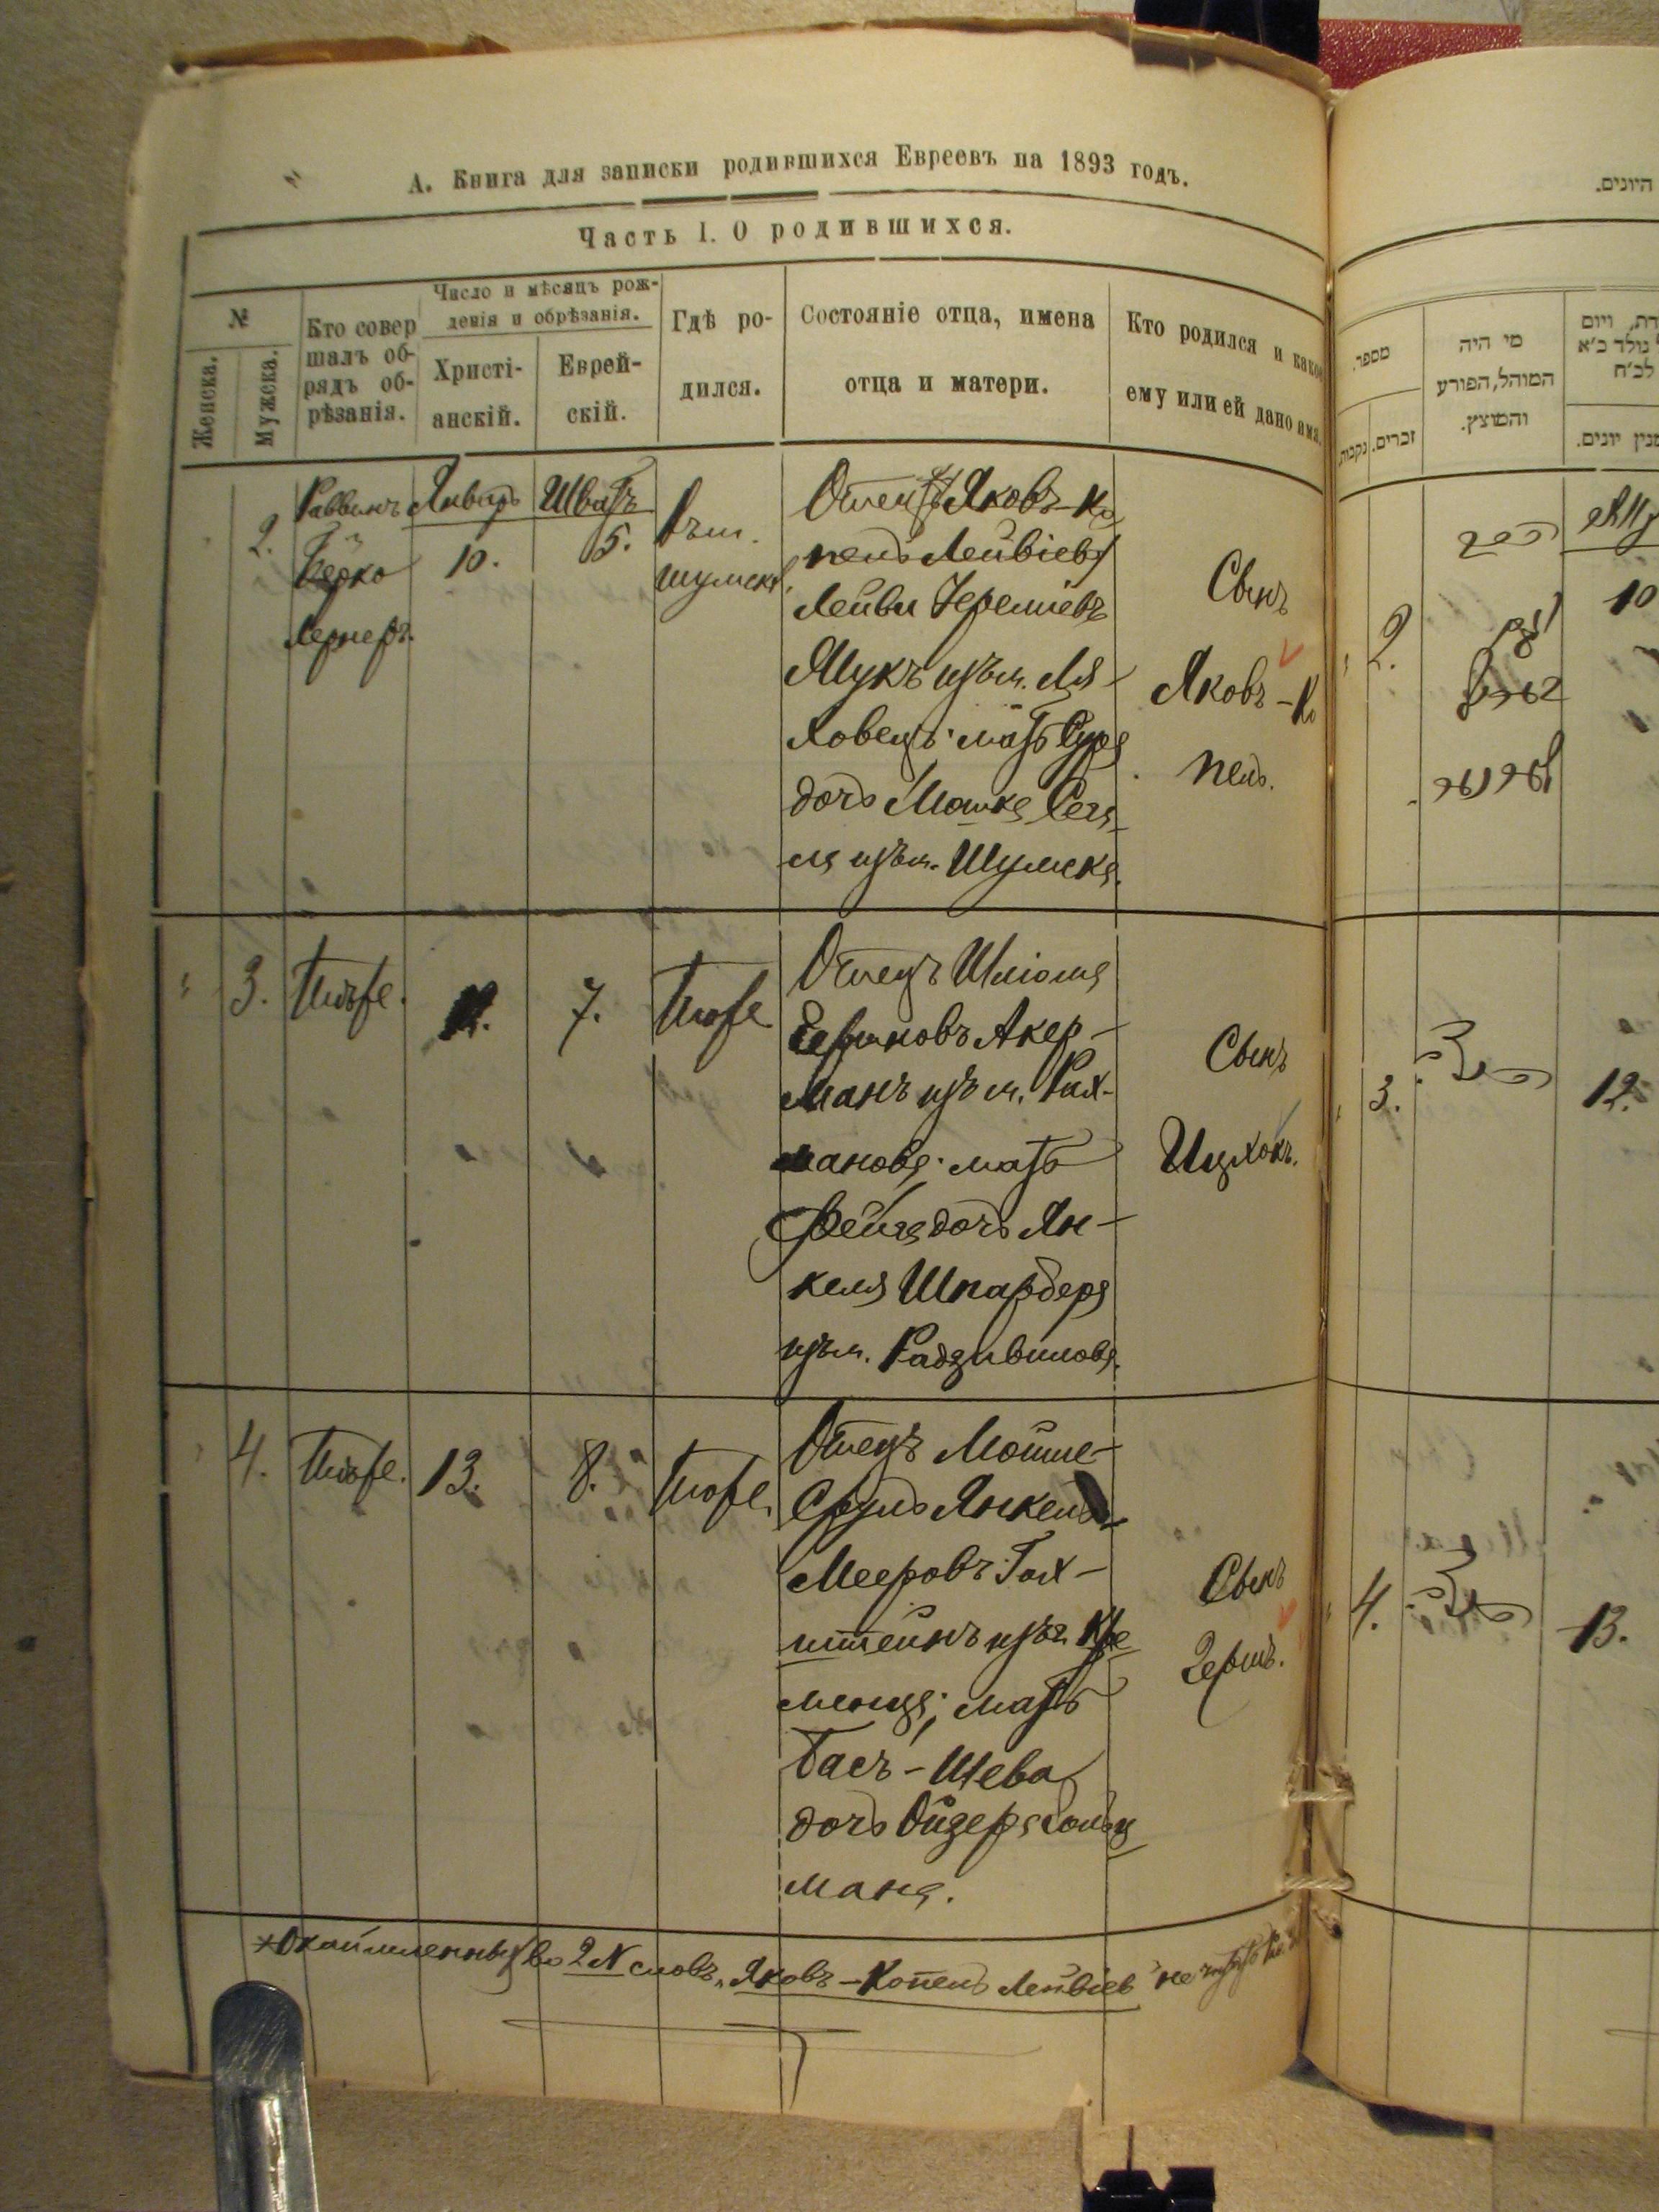 А. Книга для записки родившихся Евреевъ на 1893 годъ.
Часть I. О родившихся.
№
Женска.
Мужска.
Кто совер
шалъ об-
рядъ об-
рѣзанія.
Число и мѣсяцъ рож-
денія и обрѣзанія.
Христі-
анскій.
Еврей-
скій.
Гдѣ ро-
дился.
Состояніе отца, имена
отца и матери.
Кто родился и какое
ему или ей дано имя.
2.
Раввинъ
Берко
Лернеръ.
Январь
10.
Шватъ
5.
Въ м.
Шумскѣ.
Отецъ Яковъ-Ко
пель Лейвіевъ
Лейви Іереміевъ
Ямукъ изъ м. Ля-
ховецъ; мать Сура
дочь Мошка Сега-
ла изъ м. Шумска.
Сынъ
Яковъ-Ко
пель.
3.
Тоже.
12.
7.
Тоже
Отецъ Шліома
Гершковъ Акер-
манъ изъ м. Рах-
манова; мать
Фейга дочь Ян-
келя Шпарбера
изъ м. Радзивилова.
Сынъ
Ицхокъ.
4.
Тоже.
13.
8.
Тоже.
Отецъ Мойше-
Сруль Янкель-
Мееровъ Гох-
штейнъ изъ г. Кре
менца; мать
Бася-Шева
дочь Ойзера Гольц
мана.
Сынъ
Гершъ.
*Окаймленныхъ во 2 № словъ "Яковъ-Копель Лейвіев" не читать
היונים.
מספר.
זכרים.
נקבות.
מי היה
המוהל, הפורע
והמוצץ.
ויום
נולד כ"א
לכ"ח
יונים.
2.
10
3.
12.
4.
13.